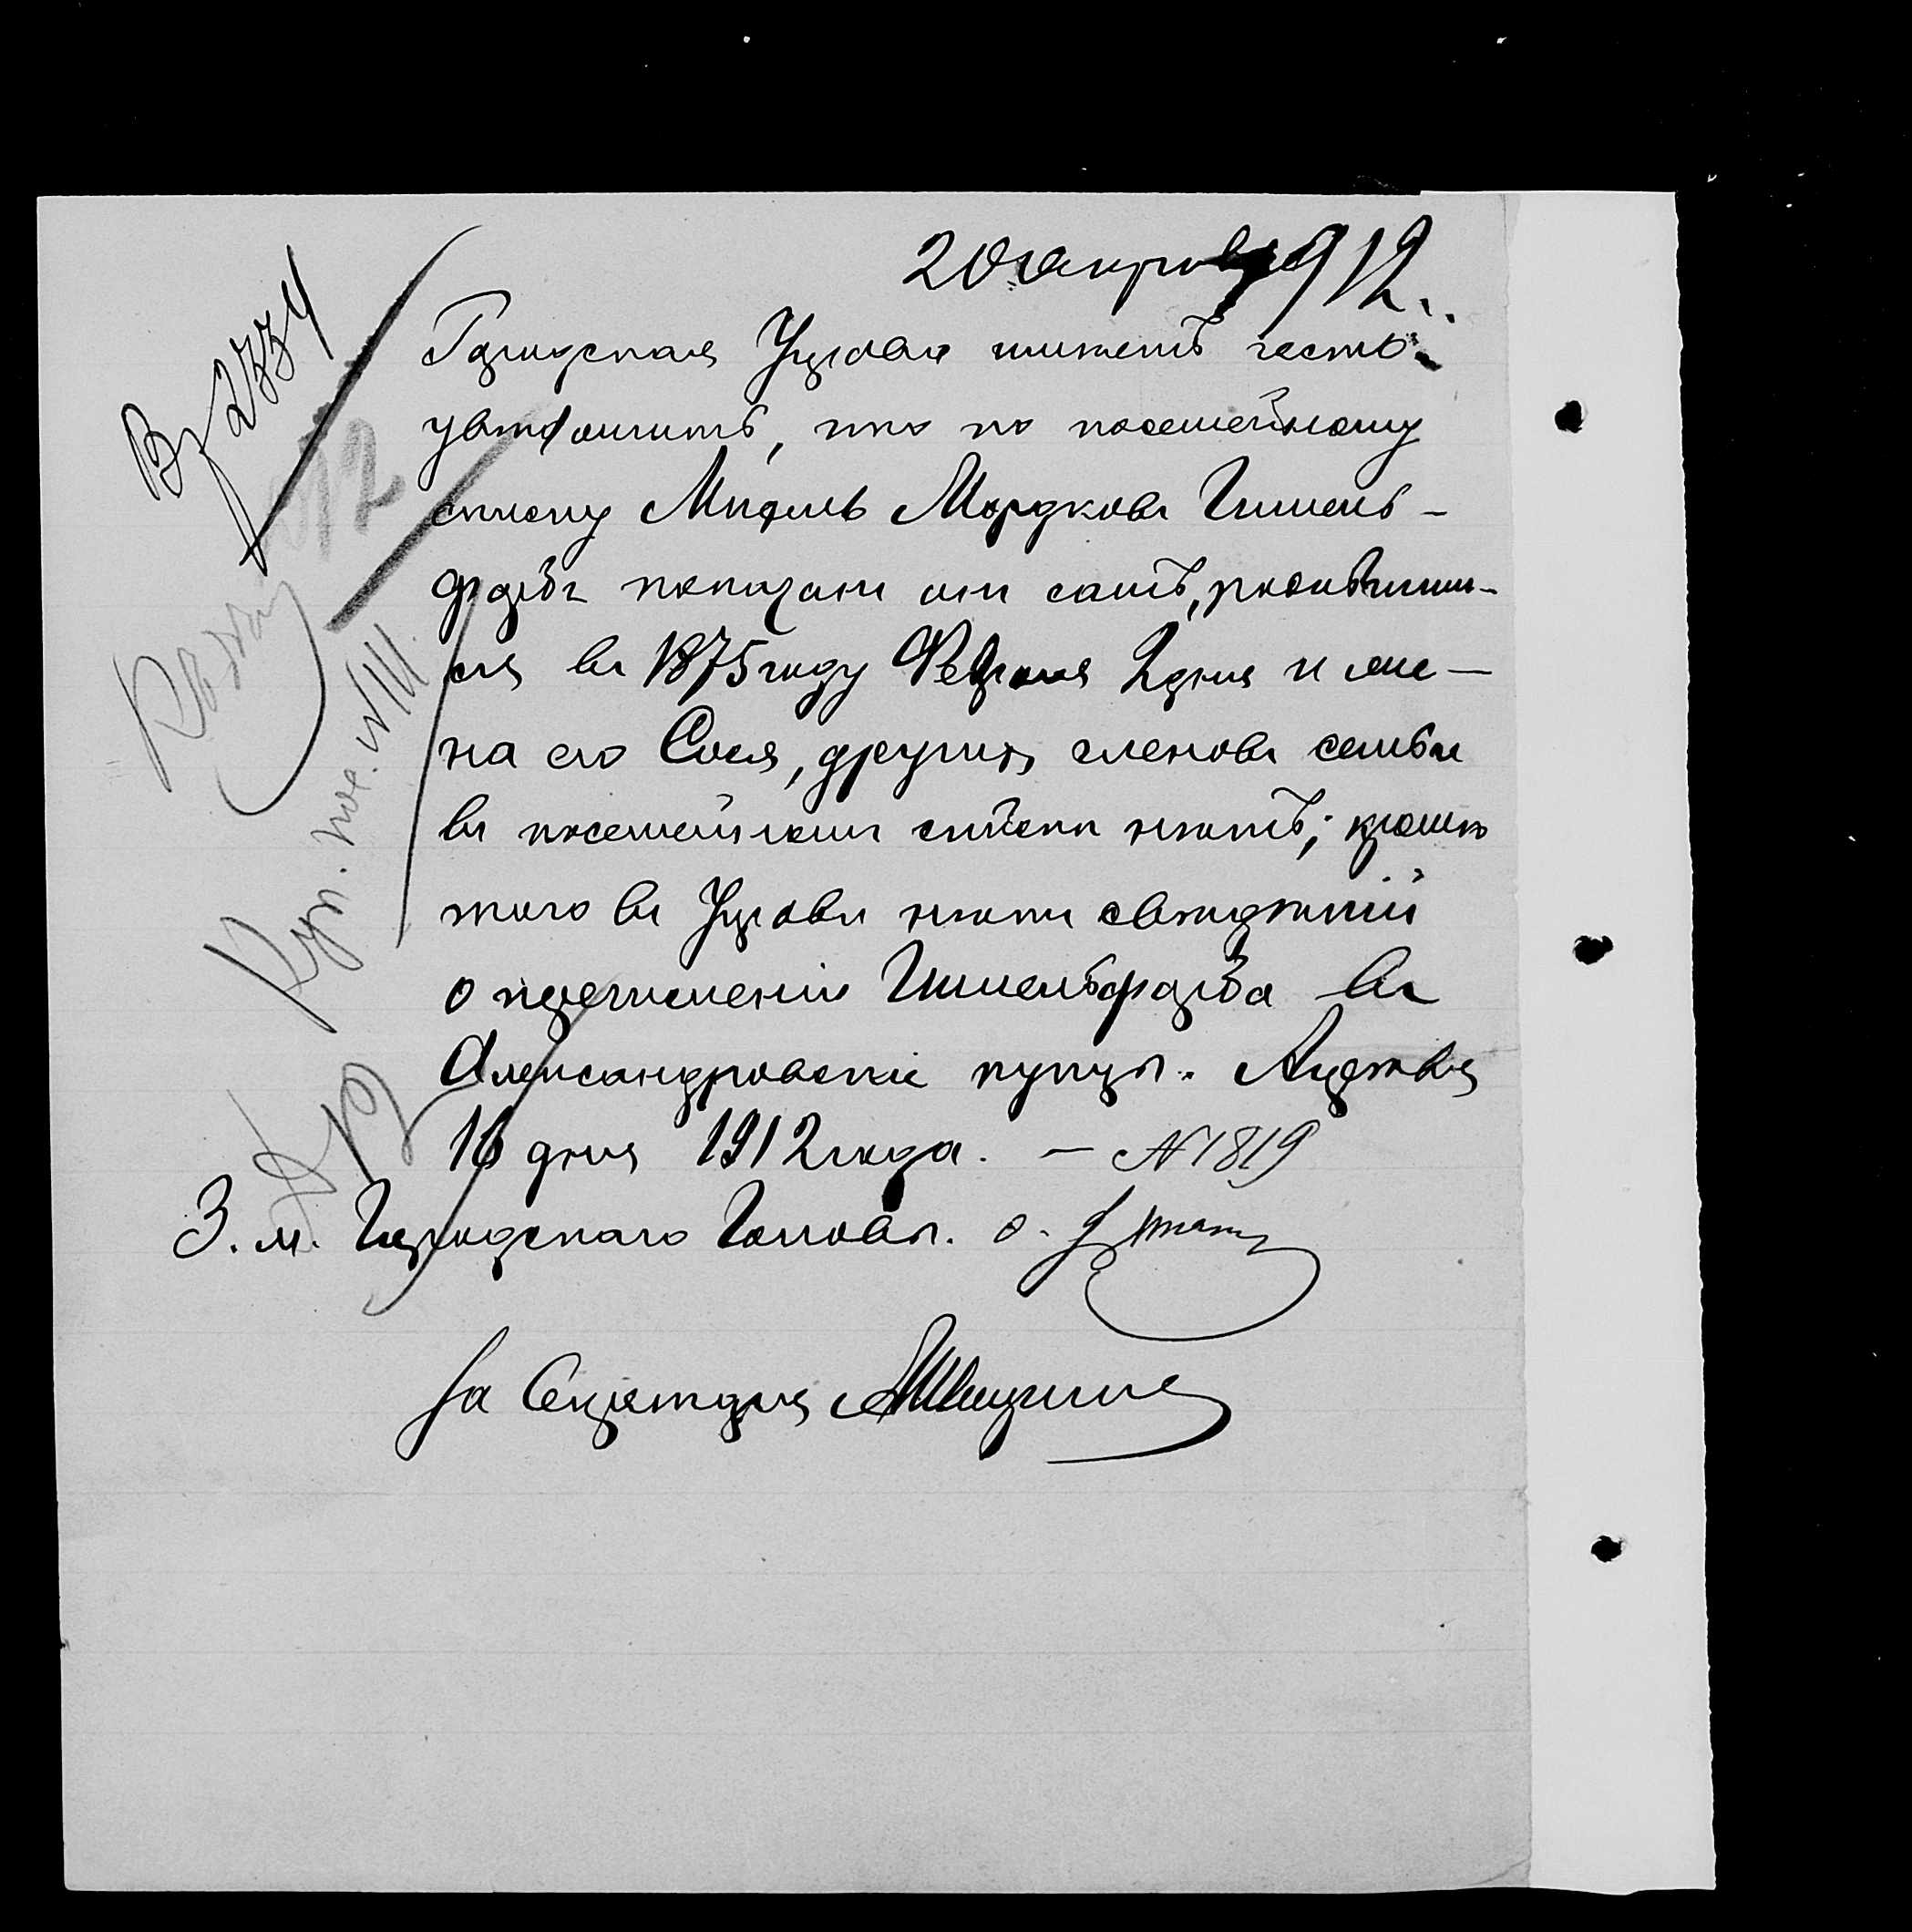 20 апрѣля 912.
Вх 2334
Городская Управа имѣетъ честь
увѣдомить, что по посемейному
списку Михель Мордковъ Гиммель-
фарбъ показанъ онъ самъ, родивший-
ся въ 1875 году Февраля 2 дня и же-
на его Сося, другихъ членовъ семьи
въ посемейномъ спискѣ нѣтъ; кромѣ
того въ Управѣ нѣтъ свѣдѣній
о перечисленіи Гиммельфарба въ
Александровскіе купцы. Апрѣля
16 дня 1912 года. — № 1819
З. м. Городского Головы.
За Секретаря